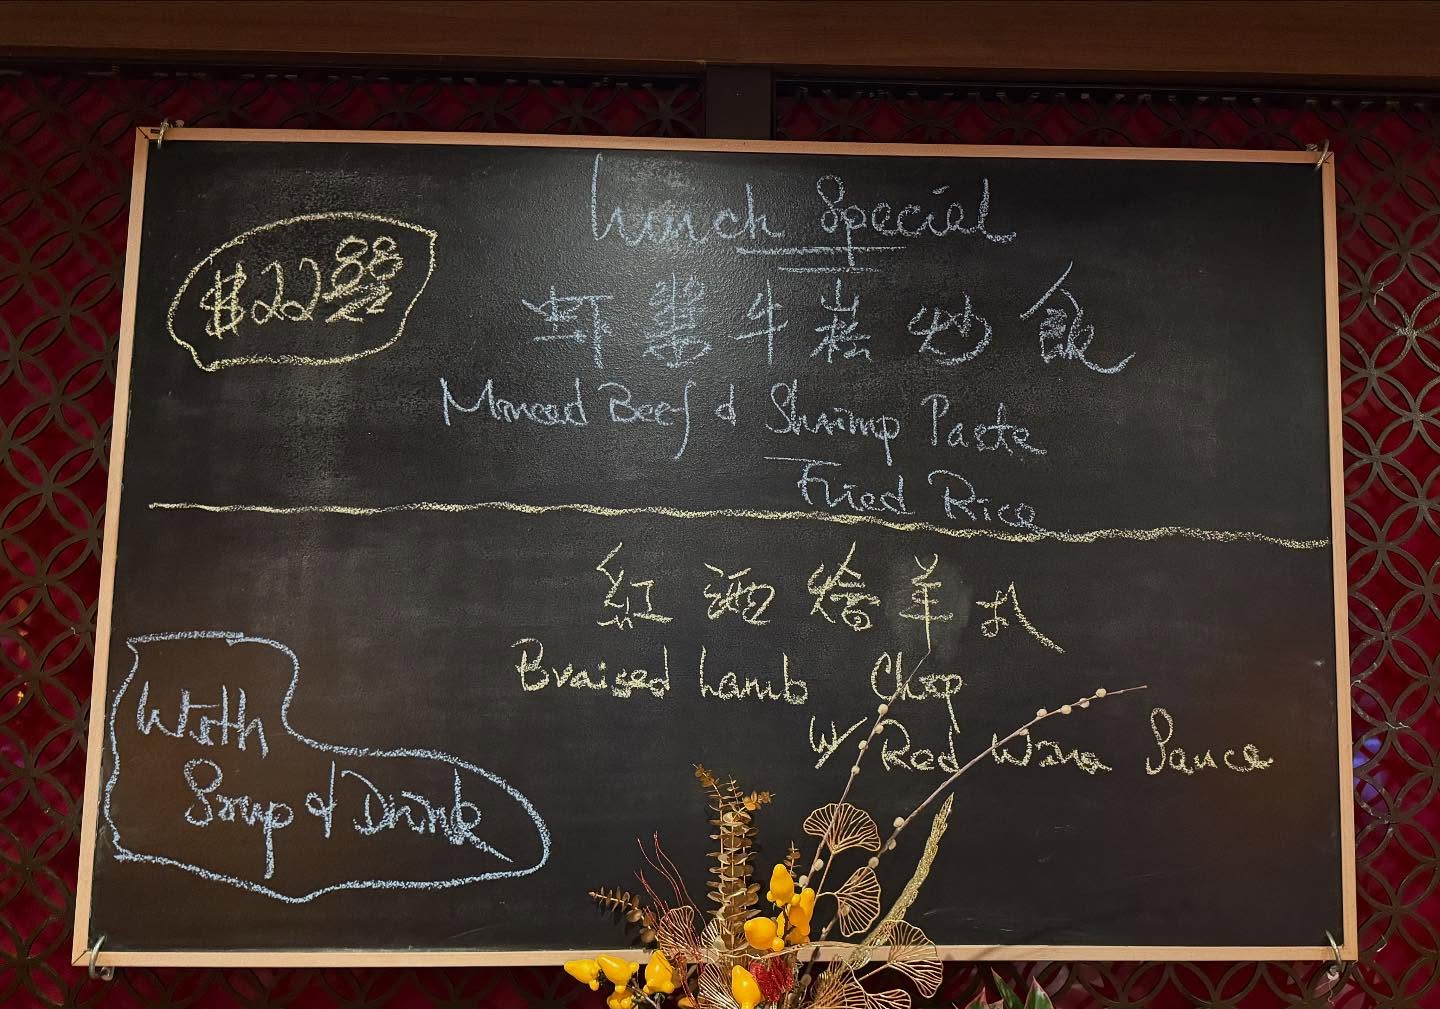 Lunch Special
$22.88
虾漿牛崧炒飯
Minced Beef & Shrimp Paste
Fried Rice
紅酒燴羊扒
Braised Lamb Chop
W/ Red Wine Sauce
With
Soup & Drink